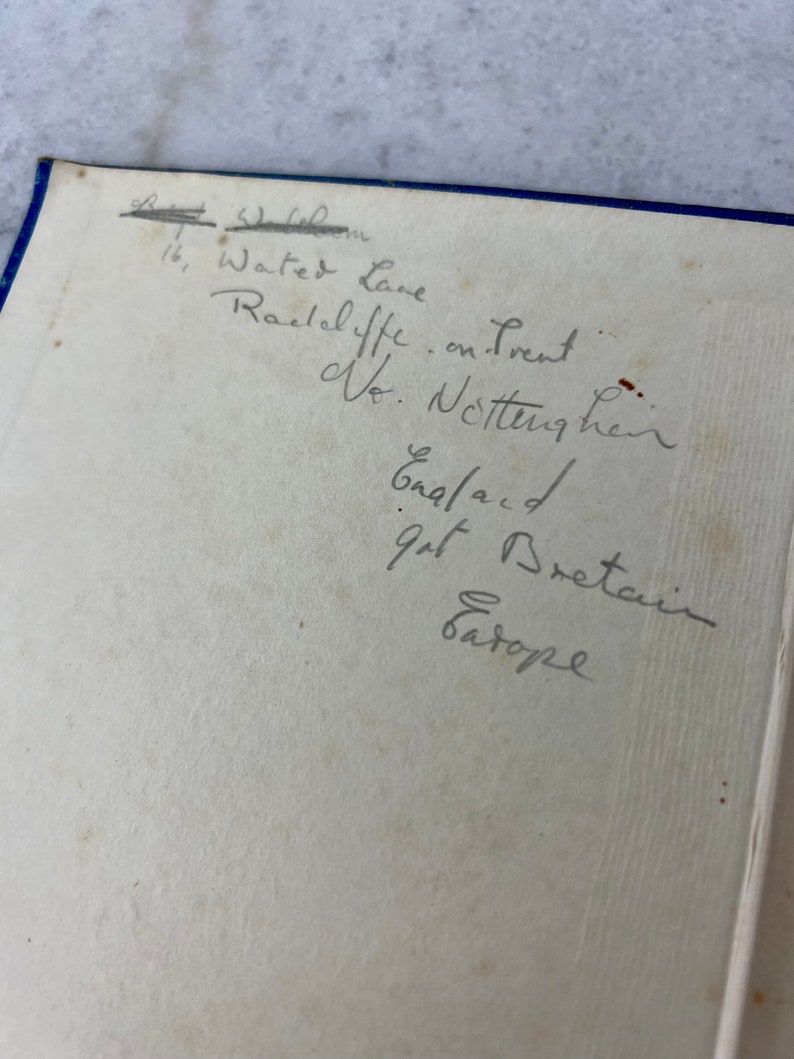 16, Water Lane
Radcliffe. on-Trent
Nr. Nottingham
England
Gat Bretain
Europe